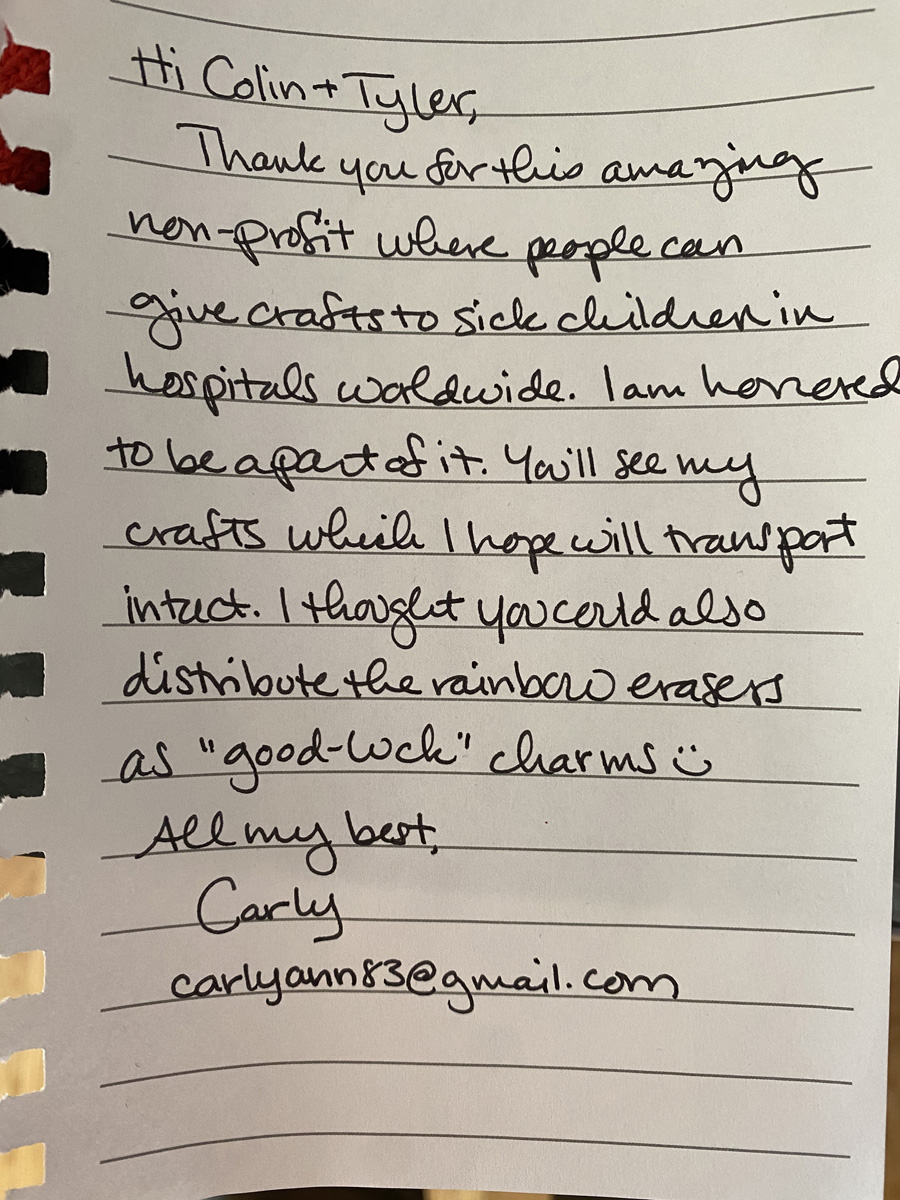 Hi Colin + Tyler,
Thank you for this amazing
non-profit where people can
give crafts to sick children in
hospitals worldwide. I am honored
to be a part of it. You'll see my
crafts which I hope will transport
intact. I thought you could also
distribute the rainbow erasers
as "good-luck" charms :)
All my best,
Carly
carlyann83@gmail.com